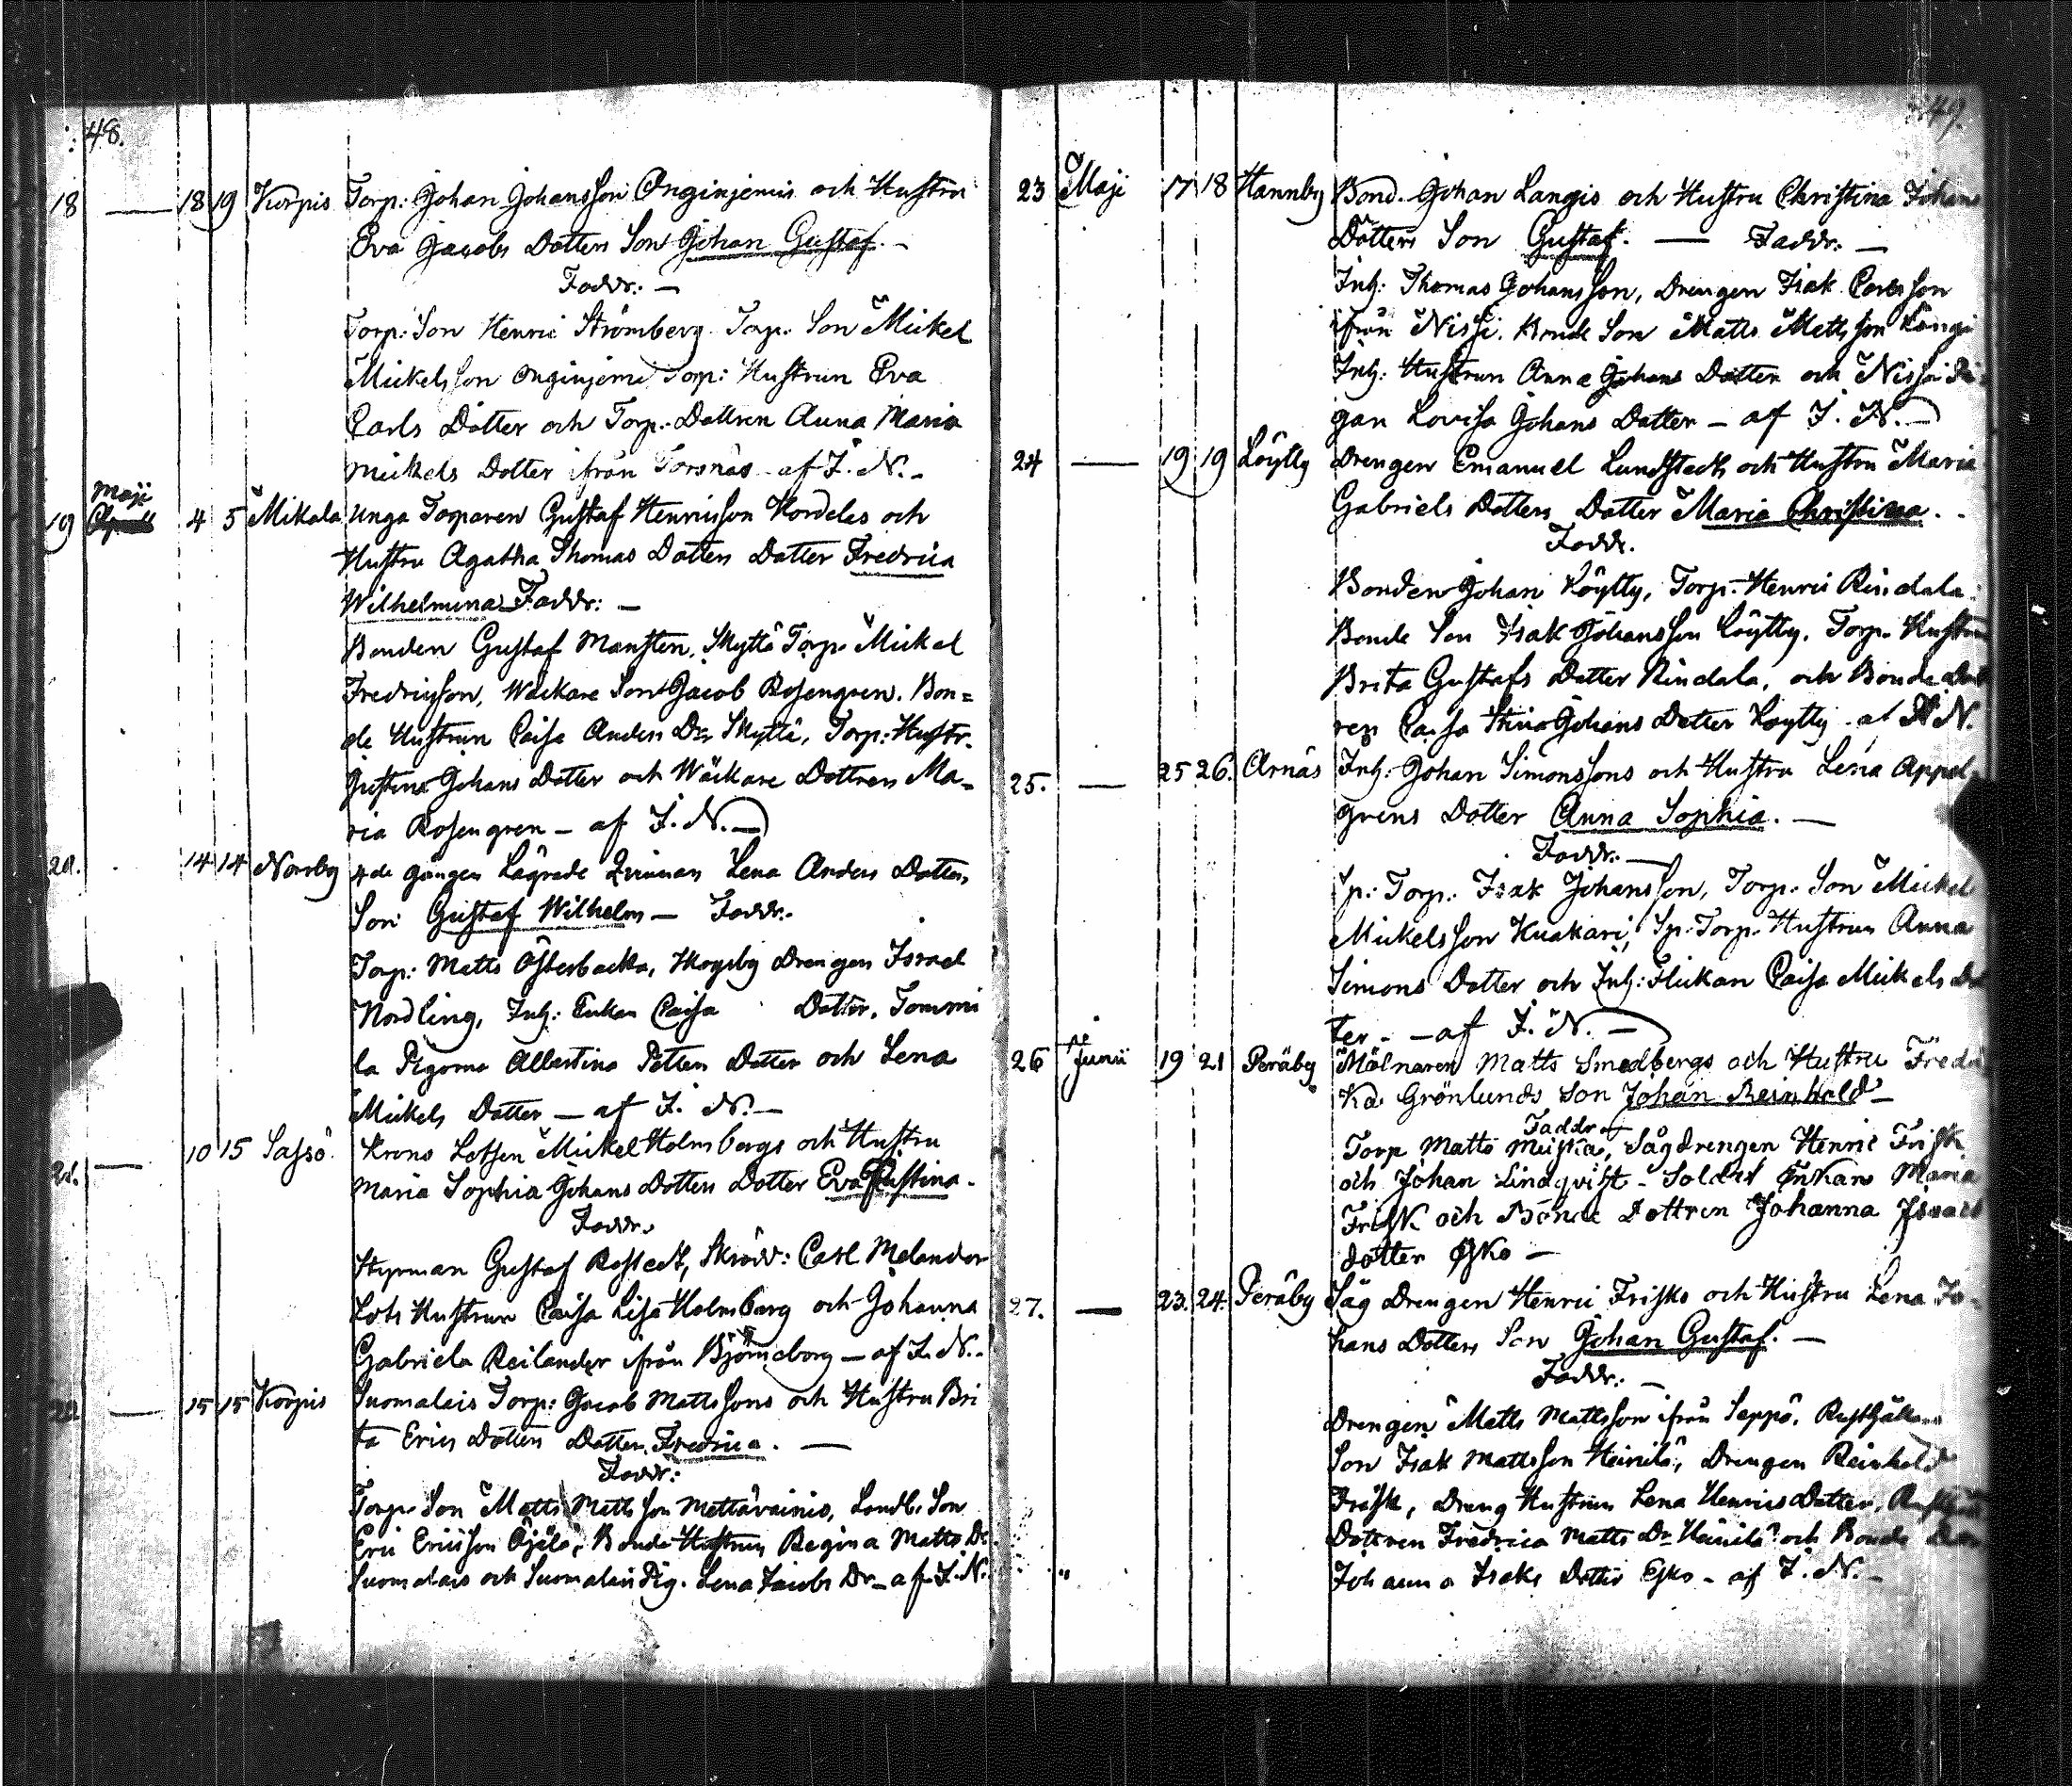 48.
18 — 18 19 Korpis Torp: Johan Johansson Onginjemis och Hustru
Eva Jacobs Dotters Son Johan Gustaf. —
Faddr: —
Torp: Son Henric Strömberg Torp. Son Mickel
Mickelsson Onginjemi Torp: Hustrun Eva
Carls Dotter och Torp. Dottren Anna Maria
Mickels Dotter ifrån Torsnäs — af I. N. —
Maji
19 4 5 Mikala Unga Torparen Gustaf Henricsson Kordelas och
Hustru Agatha Thomas Dotters Dotter Fredrica
Wilhelmina Faddr: —
Bonden Gustaf Mansten, Skyttä Torp. Mickel
Fredricsson, Wäckare Son Jacob Rosengren. Bon=
de Hustrun Caisa Anders Dr Skyttä, Torp: Hustr.
Justina Johans Dotter och Wäckare Dottren Ma=
ria Rosengren — af I. N. —
20. 14 14 Norrby 4de gången Lägrade Qvinnan Lena Anders Dotters
Son Gustaf Wilhelm — Faddr.
Torp: Matts Österbacka, Skogsby Drengen Israel
Nordling, Inh: Enkan Caisa Dotter, Tommi
la Pigorna Albertina Petters Dotter och Lena
Mickels Dotter — af I. N. —
21. — 10 15 Sassö. Krono Lotsen Mickel Holmbergs och Hustru
Maria Sophia Johans Dotters Dotter Eva Justina.
Faddr.
Styrman Gustaf Rostedt, Skrädd: Carl Melander
Lots Hustrun Caisa Lisa Holmberg och Johanna
Gabriela Reilander ifrån Björneborg — af I. N. —
22 — 15 15 Korpis Suomalais Torp: Jacob Mattssons och Hustru Bri
ta Erics Dotters Dotter Fredrica. —
Faddr:
Torp. Son Matts Mattsson Mettävainio, Landb. Son
Eric Ericsson Öjälä, Bonde Hustrun Regina Matts Dr
Suomalais och Suomalais Pig. Lena Jacobs Dr — af I. N.
49.
23 Maji 17 18 Hannby Bond. Johan Langis och Hustru Christina Johans
Dotters Son Gustaf. — Faddr: —
Inh: Thomas Johansson, Drengen Isak Carlsson
ifrån Nissi. Bonde Son Matts Mattsson Langi
Inh: Hustrun Anna Johans Dotter och Nissi Pi
gan Lovisa Johans Dotter — af I. N. —
24 — 19 19 Löytty Drengen Emanuel Lundstedts och Hustru Maria
Gabriels Dotters Dotter Maria Christina. —
Faddr.
Bonden Johan Löytty, Torp. Henric Rindala
Bonde Son Isak Johansson Löytty. Torp. Hustrun
Brita Gustafs Dotter Rindala, och Bonde Dott
ren Caisa Stina Johans Dotter Löytty af I. N.
25. — 25 26. Arnäs Inh: Johan Simonssons och Hustru Lena Appel=
grens Dotter Anna Sophia. —
Faddr. —
Sp: Torp. Isak Johansson, Torp. Son Mickel
Mickelsson Kuakari, Sp. Torp. Hustrun Anna
Simons Dotter och Inh: Flickan Caisa Mickels Dot
ter — af I. N. —
26 Junii 19 21 Peräby Mölnaren Matts Smedbergs och Hustru Fredri
Ka Grönlunds Son Johan Reinhold —
Faddr
Torp Matts Meiska, Sågdrengen Henric Frisk
och Johan Lindqvist — Soldat EnKan Maria
Frisk och Bonde Dottren Johanna Isaacs
dotter Esko —
27. — 23. 24. Peräby Såg Drengen Henric Frisks och Hustru Lena Jo=
hans Dotters Son Johan Gustaf. —
Faddr: —
Drengen Matts Mattsson ifrån Seppä, Rusthållare
Son Isak Mattsson Heinilä, Drengen Reinhold
Frisk, Dreng Hustrun Lena Henrics Dotter,
Dottren Fredrica Matts Dr Heinilä och Bonde
Johanna Isaks Dotter Esko — af I. N. —